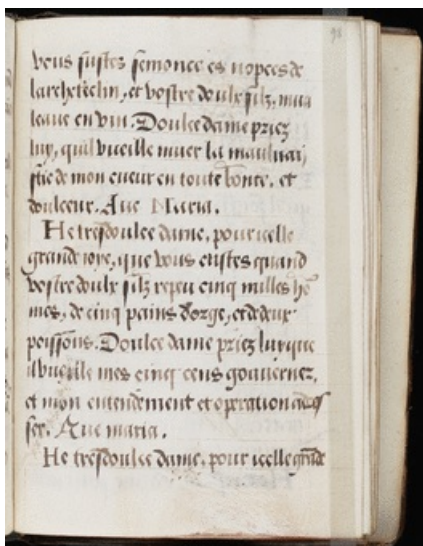 98
vous fustes semonce es nopces de
larcheteclin, et vostre doulx filz, mua
leaue en vin. Doulce dame priez
luy, quil vueille muer la mauluai
stie de mon cueur en toute bonte, et
doulceur. Aue Maria.
He tresdoulce dame, pour icelle
grande ioye, que vous eustes quand
vostre doulx filz repeu cinq milles hō
mes, de cinq pains dorge, et de deux
poissons. Doulce dame priez luy que
il vueille mes cinq cens gouuerner,
et mon entendement et operation
ser. Aue maria.
He tresdoulce dame, pour icelle grāde